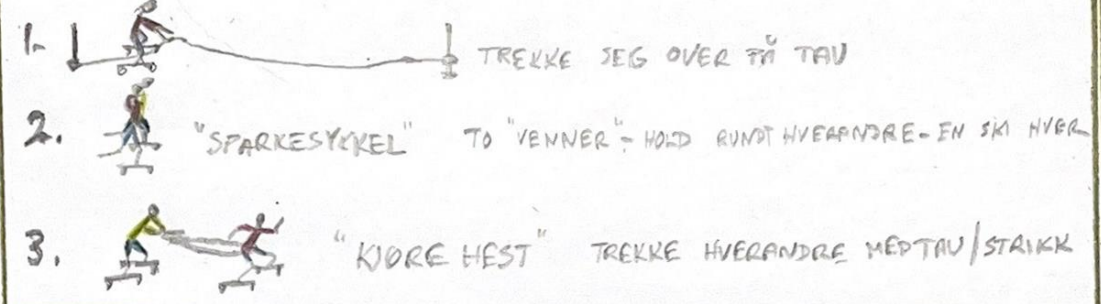 1. TREKKE SEG OVER PÅ TAU
2. "SPARKESYKKEL" TO "VENNER" - HOLD RUNDT HVERANDRE - EN SKI HVER
3. "KJØRE HEST" TREKKE HVERANDRE MED TAU/STRIKK